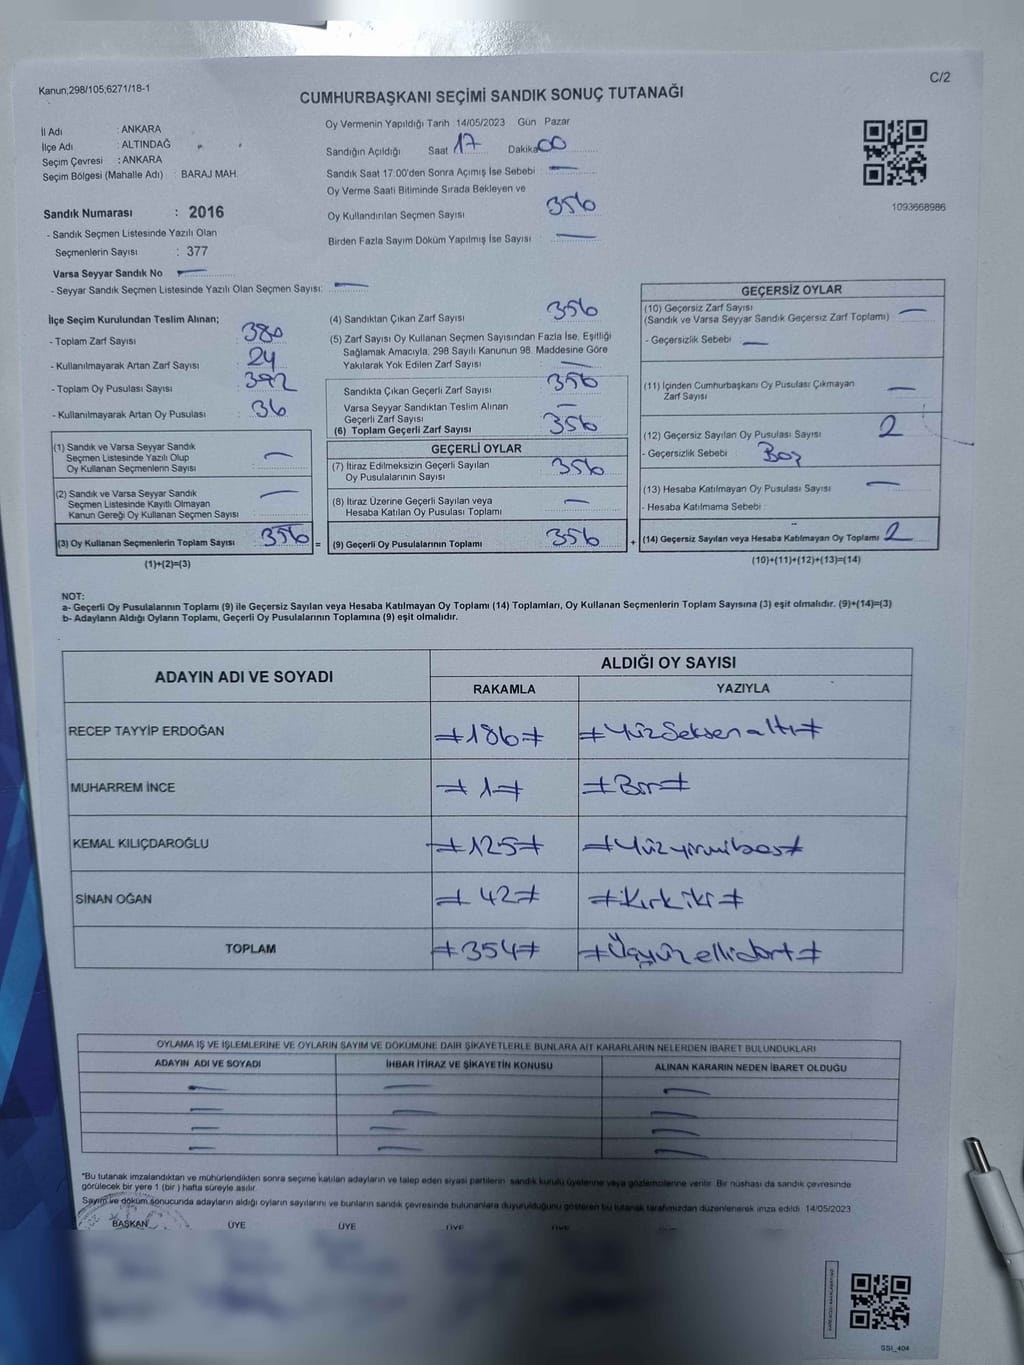 Kanun;298/105;6271/18-1
C/2
CUMHURBAŞKANI SEÇİMİ SANDIK SONUÇ TUTANAĞI
İl Adı : ANKARA
İlçe Adı : ALTINDAĞ
Seçim Çevresi : ANKARA
Seçim Bölgesi (Mahalle Adı) : BARAJ MAH.
Sandık Numarası : 2016
- Sandık Seçmen Listesinde Yazılı Olan
Seçmenlerin Sayısı : 377
Varsa Seyyar Sandık No
- Seyyar Sandık Seçmen Listesinde Yazılı Olan Seçmen Sayısı:
Oy Vermenin Yapıldığı Tarih :14/05/2023 Gün Pazar
Sandığın Açıldığı Saat 17 Dakika 00
Sandık Saat 17:00'den Sonra Açımış İse Sebebi
Oy Verme Saati Bitiminde Sırada Bekleyen ve
Oy Kullandırılan Seçmen Sayısı 356
Birden Fazla Sayım Döküm Yapılmış İse Sayısı
1093668986
İlçe Seçim Kurulundan Teslim Alınan;
- Toplam Zarf Sayısı 380
- Kullanılmayarak Artan Zarf Sayısı 24
- Toplam Oy Pusulası Sayısı 392
- Kullanılmayarak Artan Oy Pusulası 36
(1) Sandık ve Varsa Seyyar Sandık
Seçmen Listesinde Yazılı Olup
Oy Kullanan Seçmenlerin Sayısı
(2) Sandık ve Varsa Seyyar Sandık
Seçmen Listesinde Kayıtlı Olmayan
Kanun Gereği Oy Kullanan Seçmen Sayısı
(3) Oy Kullanan Seçmenlerin Toplam Sayısı 356 =
(1)+(2)=(3)
(4) Sandıktan Çıkan Zarf Sayısı 356
(5) Zarf Sayısı Oy Kullanan Seçmen Sayısından Fazla İse, Eşitliği
Sağlamak Amacıyla, 298 Sayılı Kanunun 98. Maddesine Göre
Yakılarak Yok Edilen Zarf Sayısı
Sandıkta Çıkan Geçerli Zarf Sayısı 356
Varsa Seyyar Sandıktan Teslim Alınan
Geçerli Zarf Sayısı
(6) Toplam Geçerli Zarf Sayısı 356
GEÇERLİ OYLAR
(7) İtiraz Edilmeksizin Geçerli Sayılan
Oy Pusulalarının Sayısı 356
(8) İtiraz Üzerine Geçerli Sayılan veya
Hesaba Katılan Oy Pusulası Toplamı
(9) Geçerli Oy Pusulalarının Toplamı 356 +
GEÇERSİZ OYLAR
(10) Geçersiz Zarf Sayısı
(Sandık ve Varsa Seyyar Sandık Geçersiz Zarf Toplamı)
- Geçersizlik Sebebi
(11) İçinden Cumhurbaşkanı Oy Pusulası Çıkmayan
Zarf Sayısı
(12) Geçersiz Sayılan Oy Pusulası Sayısı 2
- Geçersizlik Sebebi Boş
(13) Hesaba Katılmayan Oy Pusulası Sayısı
- Hesaba Katılmama Sebebi :
(14) Geçersiz Sayılan veya Hesaba Katılmayan Oy Toplamı 2
(10)+(11)+(12)+(13)=(14)
NOT:
a- Geçerli Oy Pusulalarının Toplamı (9) ile Geçersiz Sayılan veya Hesaba Katılmayan Oy Toplamı (14) Toplamları, Oy Kullanan Seçmenlerin Toplam Sayısına (3) eşit olmalıdır. (9)+(14)=(3)
b- Adayların Aldığı Oyların Toplamı, Geçerli Oy Pusulalarının Toplamına (9) eşit olmalıdır.
ADAYIN ADI VE SOYADI
ALDIĞI OY SAYISI
RAKAMLA YAZIYLA
RECEP TAYYİP ERDOĞAN ≠186≠ ≠Yüzseksenaltı≠
MUHARREM İNCE ≠1≠ ≠Bir≠
KEMAL KILIÇDAROĞLU ≠125≠ ≠Yüzyirmibeş≠
SİNAN OĞAN ≠42≠ ≠Kırkiki≠
TOPLAM ≠354≠ ≠Üçyüzellidört≠
OYLAMA İŞ VE İŞLEMLERİNE VE OYLARIN SAYIM VE DÖKÜMÜNE DAİR ŞİKAYETLERLE BUNLARA AİT KARARLARIN NELERDEN İBARET BULUNDUKLARI
ADAYIN ADI VE SOYADI İHBAR İTİRAZ VE ŞİKAYETİN KONUSU ALINAN KARARIN NEDEN İBARET OLDUĞU
*Bu tutanak imzalandıktan ve mühürlendikten sonra seçime katılan adayların ve talep eden siyasi partilerin sandık kurulu üyelerine veya gözlemcilerine verilir. Bir nüshası da sandık çevresinde
görülecek bir yere 1 (bir ) hafta süreyle asılır.
Sayım ve döküm sonucunda adayların aldığı oyların sayılarını ve bunların sandık çevresinde bulunanlara duyurulduğunu gösteren bu tutanak tarafımızdan düzenlenerek imza edildi. 14/05/2023
BAŞKAN ÜYE ÜYE ÜYE ÜYE
GSI_404